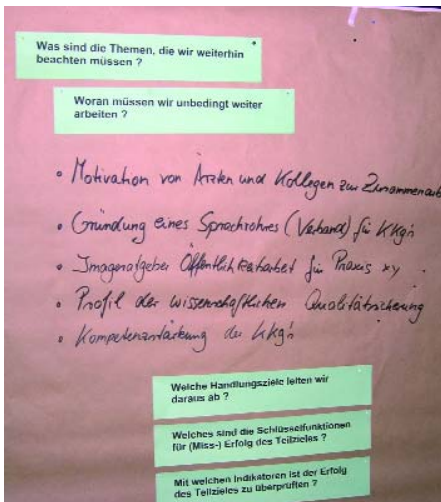 Was sind die Themen, die wir weiterhin
beachten müssen ?
Woran müssen wir unbedingt weiter
arbeiten ?
• Motivation von Ärzten und Kollegen zur Zusammenarb
• Gründung eines Sprachrohres (Verband) für KKg'n
• Imageratgeber Öffentlichkeitarbeit für Praxis xy
• Profil der wissenschaftlichen Qualitätsicherung
• Kompetenzstärkung der KKg'n
Welche Handlungsziele leiten wir
daraus ab ?
Welches sind die Schlüsselfunktionen
für (Miss-) Erfolg des Teilzieles ?
Mit welchen Indikatoren ist der Erfolg
des Teilzieles zu überprüfen ?